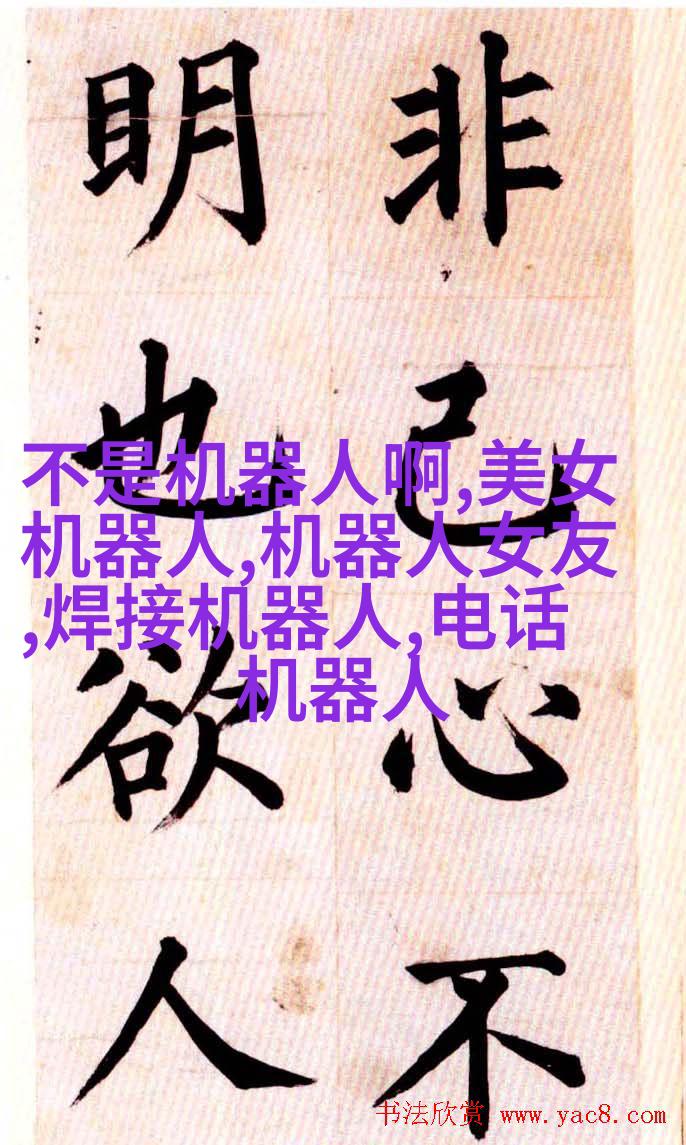 非己心不
明也欲人
不是机器人啊,美女
机器人,机器人女友
,焊接机器人,电话
机器人
书法欣赏 www.yac8.com